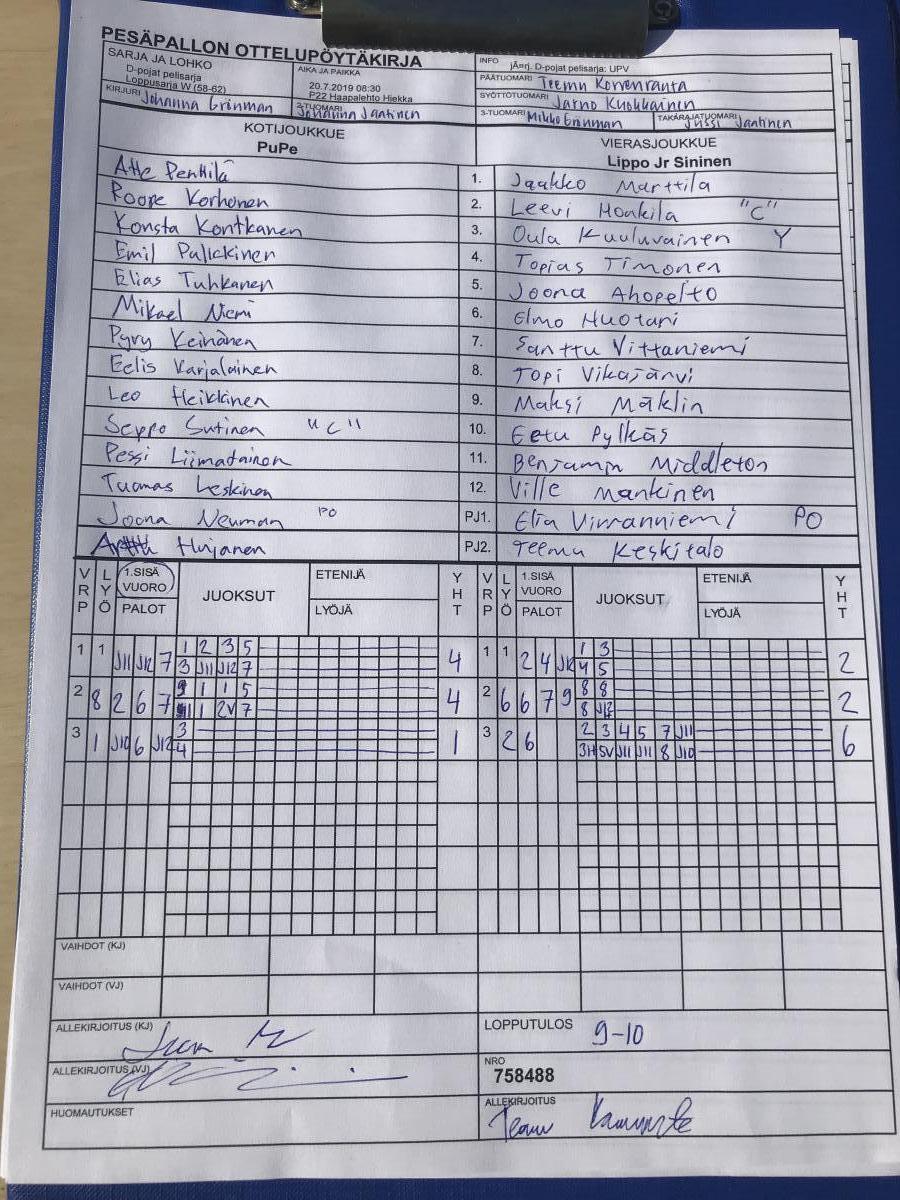 PESÄPALLON OTTELUPÖYTÄKIRJA
SARJA JA LOHKO
D-pojat pelisarja
Loppusarja W (58-62)
AIKA JA PAIKKA
20.7.2019 08:30
P22 Haapalehto Hiekka
KIRJURI Johanna Erinman
2-TUOMARI Johanna Jaatinen
INFO jÃ¤rj. D-pojat pelisarja: UPV
PÄÄTUOMARI Teemu Korvenranta
SYÖTTÖTUOMARI Jarno Kuokkainen
3-TUOMARI Mikko Erinman
TAKARAJATUOMARI Jussi Jaatinen
KOTIJOUKKUE
PuPe
VIERASJOUKKUE
Lippo Jr Sininen
Atte Penttilä 1. Jaakko Marttila
Roope Korhonen 2. Leevi Honkila "C"
Konsta Kontkanen 3. Oula Kuuluvainen Y
Emil Pallckinen 4. Topias Timonen
Elias Tuhkanen 5. Joona Ahopelto
Mikael Niemi 6. Elmo Huotari
Pyry Keinänen 7. Santtu Vittaniemi
Eelis Karjalainen 8. Topi Vikajärvi
Leo Heikkinen 9. Maksi Mäklin
Seppo Sutinen "C" 10. Eetu Pylkäs
Pessi Liimatainen 11. Benjamin Middleton
Tuomas Leskinen 12. Ville Mankinen
Joona Neuman PO PJ1. Elia Virranniemi PO
Hujanen PJ2. Teemu Keskitalo
VRP LYÖ 1.SISÄ VUORO PALOT JUOKSUT ETENIJÄ LYÖJÄ YHT VRP LYÖ 1.SISÄ VUORO PALOT JUOKSUT ETENIJÄ LYÖJÄ YHT
1 2 3 5 1 3
1 1 J11 J12 7 3 J11 J12 7 4 1 1 2 4 J12 4 5 2
9 1 1 5 8 8
2 8 2 6 7 11 1 2V 7 4 2 6 6 7 9 8 J12 2
3 2 3 4 5 7 J11
3 1 J10 6 J12 4 1 3 2 6 3H 5V J11 J11 8 J10 6
VAIHDOT (KJ)
VAIHDOT (VJ)
ALLEKIRJOITUS (KJ)
LOPPUTULOS 9-10
ALLEKIRJOITUS (VJ)
NRO
758488
HUOMAUTUKSET
ALLEKIRJOITUS